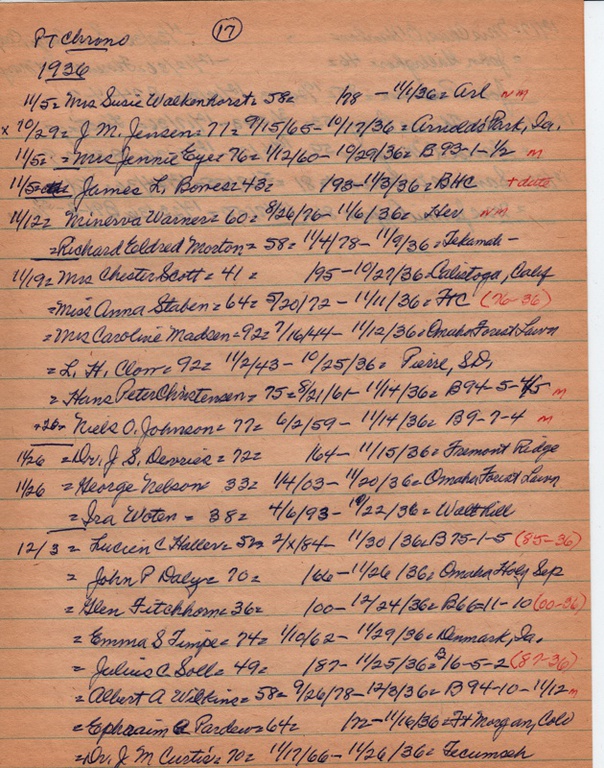 17
PT Chrono
1936
11/5= Mrs Susie Walkenhorst= 58= /78 - 11/1/36= Arl nm
x 10/29= J. M. Jensen= 71= 9/15/65- 10/17/36= Arnolds Park, Ia.
11/5= =Mrs Jennie Eye= 76= 1/12/60- 10/29/36= B 93-1-1/2 m
11/5= James L. Bones= 43= /93- 11/3/36= BHC + date
11/12= Minerva Warner= 60= 8/26/76- 11/6/36= Her nm
=Richard Eldred Morton= 58= 11/4/78- 11/9/36= Tekamah-
11/19= Mrs Chester Scott= 41= /95- 10/27/36 Calistoga, Calif
=Miss Anna Staben= 64= 5/20/72- 11/11/36= FC (76-36)
=Mrs Caroline Madsen= 92= 7/16/44- 11/12/36= Omaha Forest Lawn
= L. H. Clow= 92= 11/2/43- 10/25/36= Pierre, S.D.
= Hans Peter Christensen= 75= 8/21/61- 11/14/36= B94-5-4/5 m
=26= Niels O. Johnson= 77= 6/2/59- 11/14/36= B9-7-4 m
11/26 = Dr. J. S. Devries= 72= /64- 11/15/36= Fremont Ridge
11/26 = George Nelson= 33= 1/4/03- 11/20/36= Omaha Forest Lawn
= Ira Woten= 38= 4/6/93- 10/22/36= Walthill
12/3= Lucien C. Haller= 52= 2/x/84- 11/30/36= B75-1-5 (85-36)
= John P Daly= 70= /66- 11/26/36= Omaha Holy Sep
= Glen Fitchhorn= 36= /00- 12/24/36= B66-11-10 (00-36)
= Emma S Timpe= 74= 1/10/62- 11/29/36= Denmark, Ia.
= Julius C. Soll= 49= /87- 11/25/36= B 16-5-2 (87-36)
= Albert A Wilkins= 58= 9/26/78- 12/3/36= B94-10-11/12 m
= Ephraim C Pardew= 64= /72- 11/16/36= Ft Morgan, Colo
= Dr. J. M Curtis= 70= 11/17/66- 11/26/36= Tecumseh